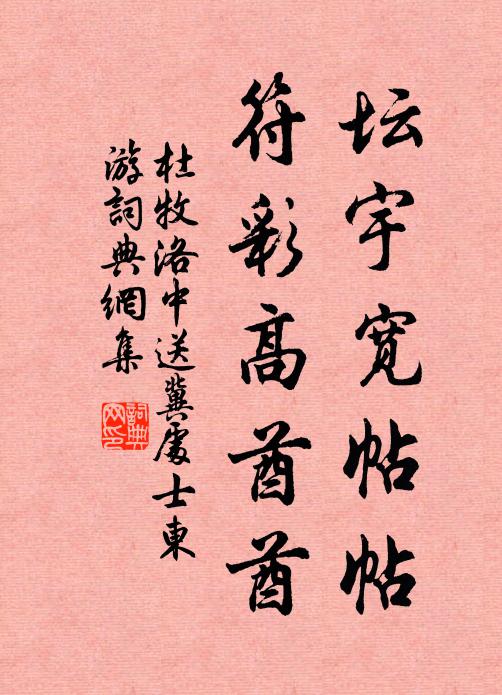 坛宇宽帖帖
符彩高酋酋
杜牧洛中送冀處士東
游詞典網集
詞典
网印